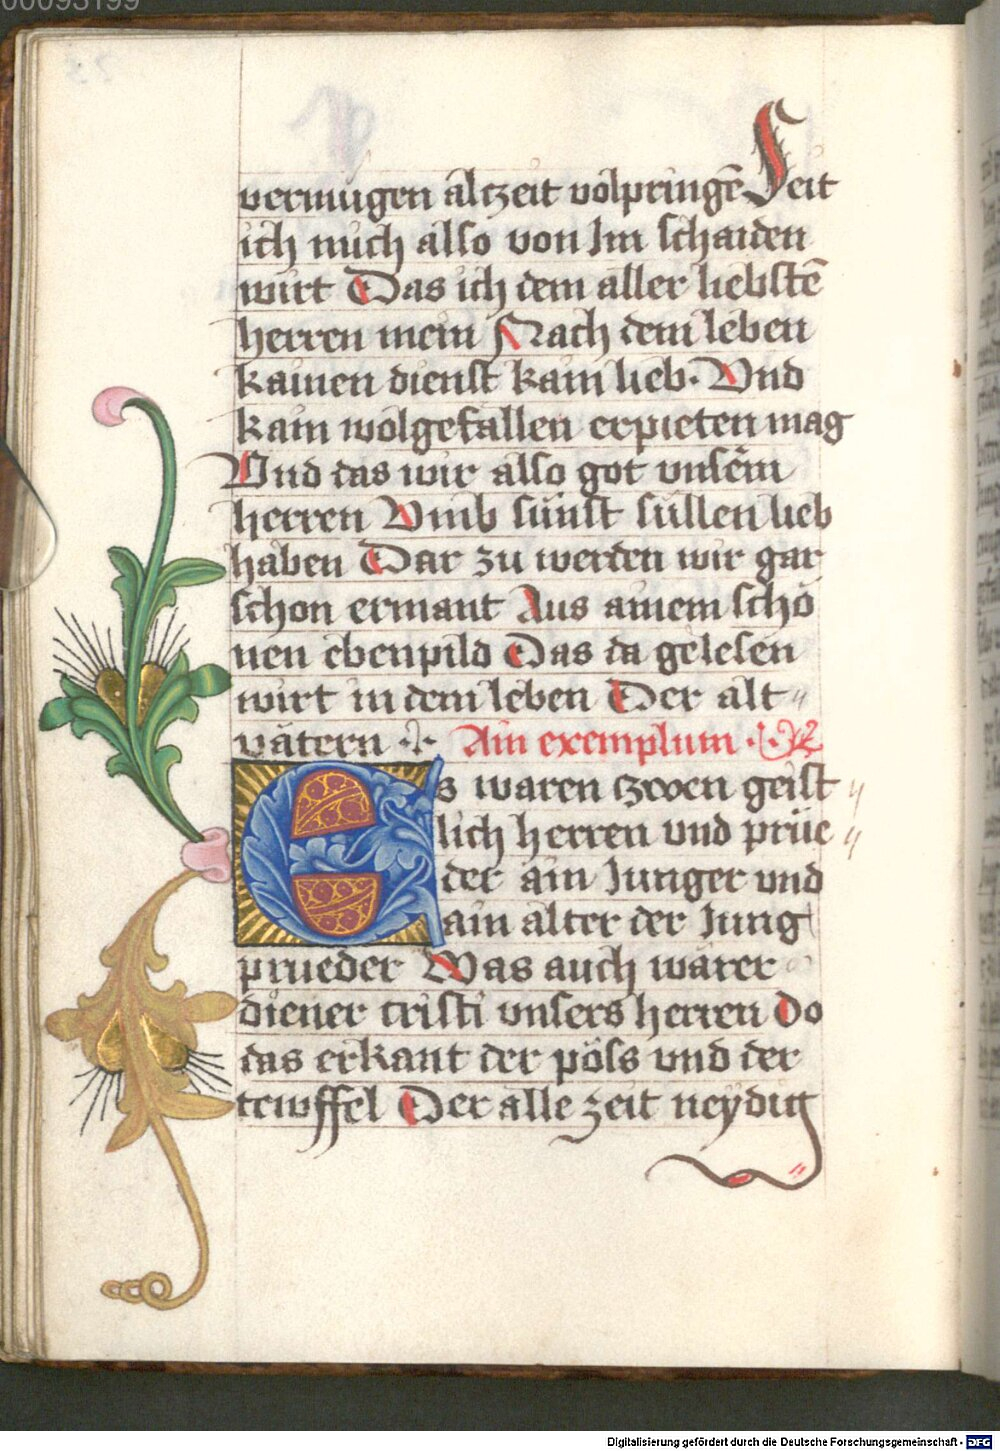 00093199
vermügen alczeit volpringē Seit
ich mich also von Im schaiden
wirt Das ich dem aller liebstē
herren mein Nach dem leben
kainen dienst kain lieb. Vnd
kain wolgefallen erpieten mag
Vnd das wir also got vnsēm
herren Vmb sünst süllen lieb
haben Dar zu werden wir gar
schon ermant Aus ainem schö
nen ebenpild Das da gelesen
wirt in dem leben Der alt
vätern Ain exemplum
Es waren czwen geist
lich herren vnd prüe
der ain Junger vnd
ain alter der Jung
prueder Was auch warer
diener cristi vnsers herren Do
das erkant der pöss vnd der
tewffel Der alle zeit neydig
Digitalisierung gefördert durch die Deutsche Forschungsgemeinschaft - DFG